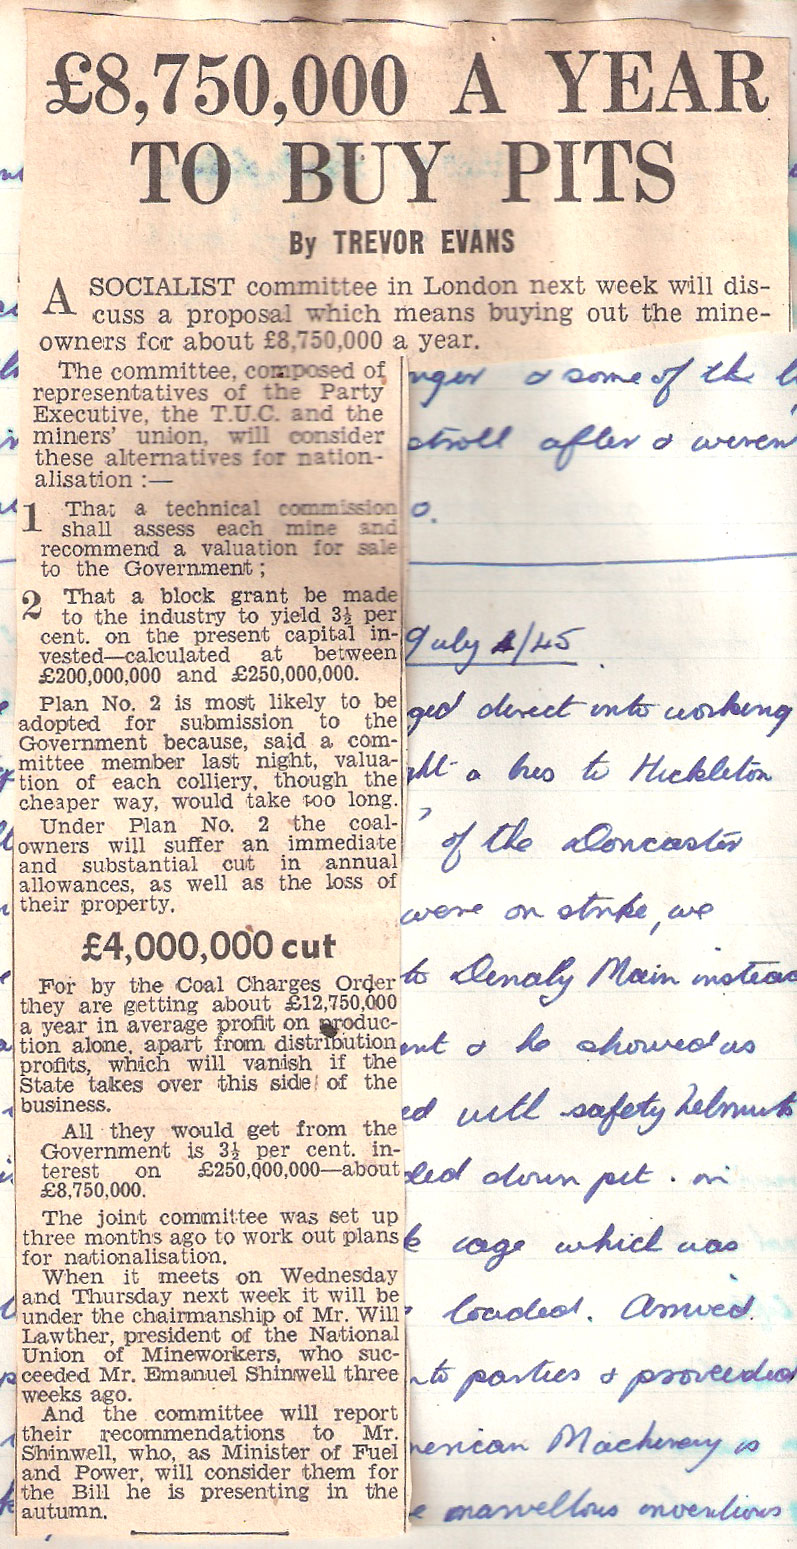 £8,750,000 A YEAR
TO BUY PITS
By TREVOR EVANS
A SOCIALIST committee in London next week will dis-
cuss a proposal which means buying out the mine-
owners for about £8,750,000 a year.
The committee, composed of
representatives of the Party
Executive, the T.U.C. and the
miners' union, will consider
these alternatives for nation-
alisation :—
1 That a technical commission
shall assess each mine and
recommend a valuation for sale
to the Government ;
2 That a block grant be made
to the industry to yield 3½ per
cent. on the present capital in-
vested—calculated at between
£200,000,000 and £250,000,000.
Plan No. 2 is most likely to be
adopted for submission to the
Government because, said a com-
mittee member last night, valua-
tion of each colliery, though the
cheaper way, would take too long.
Under Plan No. 2 the coal-
owners will suffer an immediate
and substantial cut in annual
allowances, as well as the loss of
their property.
£4,000,000 cut
For by the Coal Charges Order
they are getting about £12,750,000
a year in average profit on produc-
tion alone, apart from distribution
profits, which will vanish if the
State takes over this side of the
business.
All they would get from the
Government is 3½ per cent. in-
terest on £250,000,000—about
£8,750,000.
The joint committee was set up
three months ago to work out plans
for nationalisation.
When it meets on Wednesday
and Thursday next week it will be
under the chairmanship of Mr. Will
Lawther, president of the National
Union of Mineworkers, who suc-
ceeded Mr. Emanuel Shinwell three
weeks ago.
And the committee will report
their recommendations to Mr.
Shinwell, who, as Minister of Fuel
and Power, will consider them for
the Bill he is presenting in the
autumn.
& some of the
stroll after & weren
o.
July /45
ged direct into working
a bus to Hickleton
of the Doncaster
were on strike, we
to Denaby Main instead
& he showed us
ed with safety helmets
ded down pit . in
cage which was
loaded. Arrived
to parties & proceeded
merican Machinery is
marvellous inventions